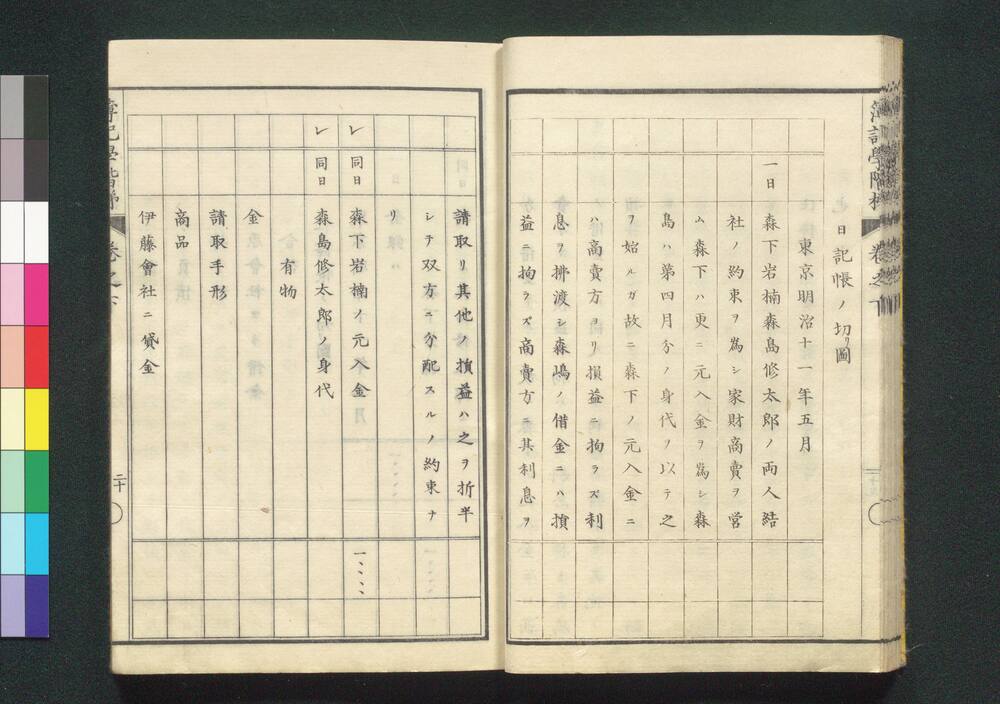 日記帳ノ切リ圖
東京明治十一年五月
一日
森下岩楠森島修太郎ノ両人結
社ノ約束ヲ為シ家財商賣ヲ営
ム森下ハ更ニ元入金ヲ為シ森
島ハ第四月分ノ身代ヲ以テ之
ヲ始ルガ故ニ森下ノ元入金ニ
ハ商賣方ヨリ損益ニ拘ラズ利
息ヲ拂渡シ森嶋ノ借金ニハ損
益ニ拘ラズ商賣方ニ其利息ヲ
請取リ其他ノ損益ハ之ヲ折半
シテ双方ニ分配スルノ約束ナ
リ
レ 同日 森下岩楠ノ元入金 一、、、、
レ 同日 森島修太郎ノ身代
有物
金
請取手形
商品
伊藤會社ニ貸金
二十